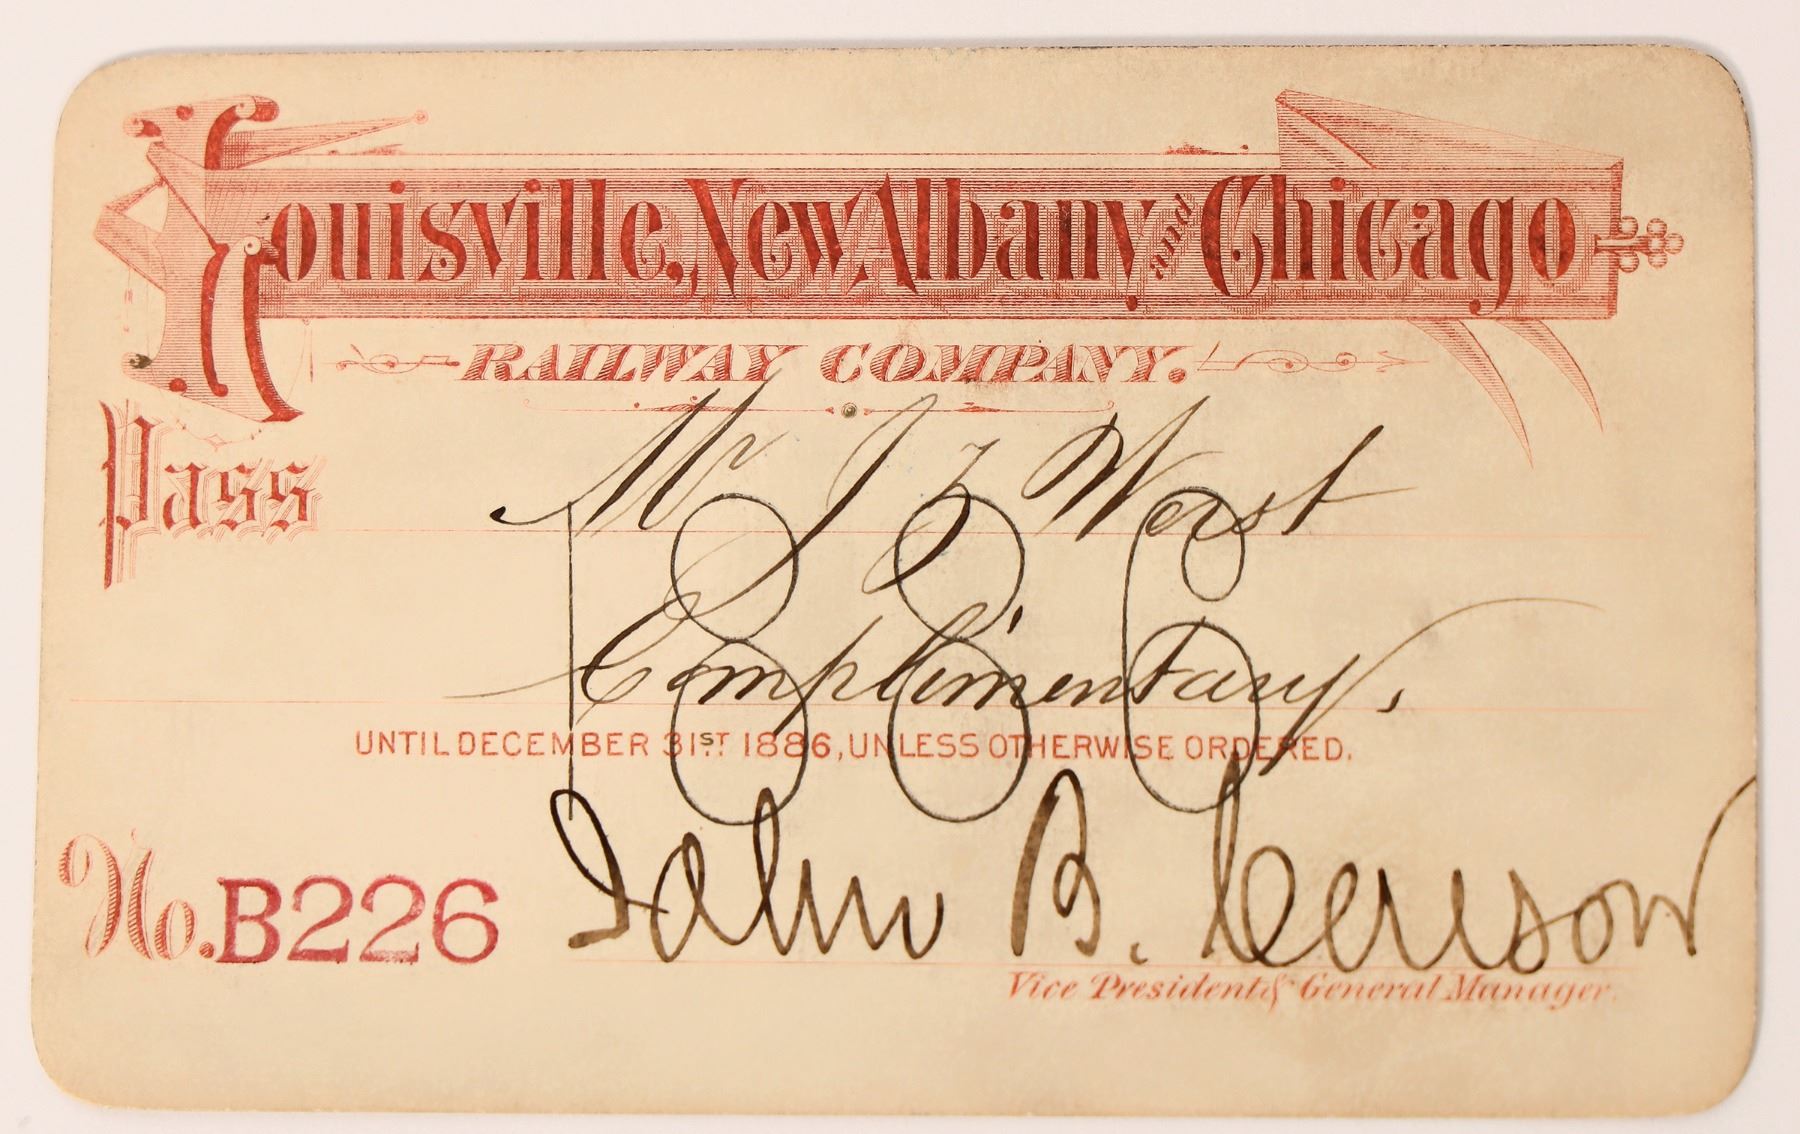 Louisville, New Albany and Chicago
RAILWAY COMPANY.
Pass Mr J Z West
1886
Complimentary.
UNTIL DECEMBER 31ST 1886, UNLESS OTHERWISE ORDERED.
No. B226 John B. Carson
Vice President & General Manager.